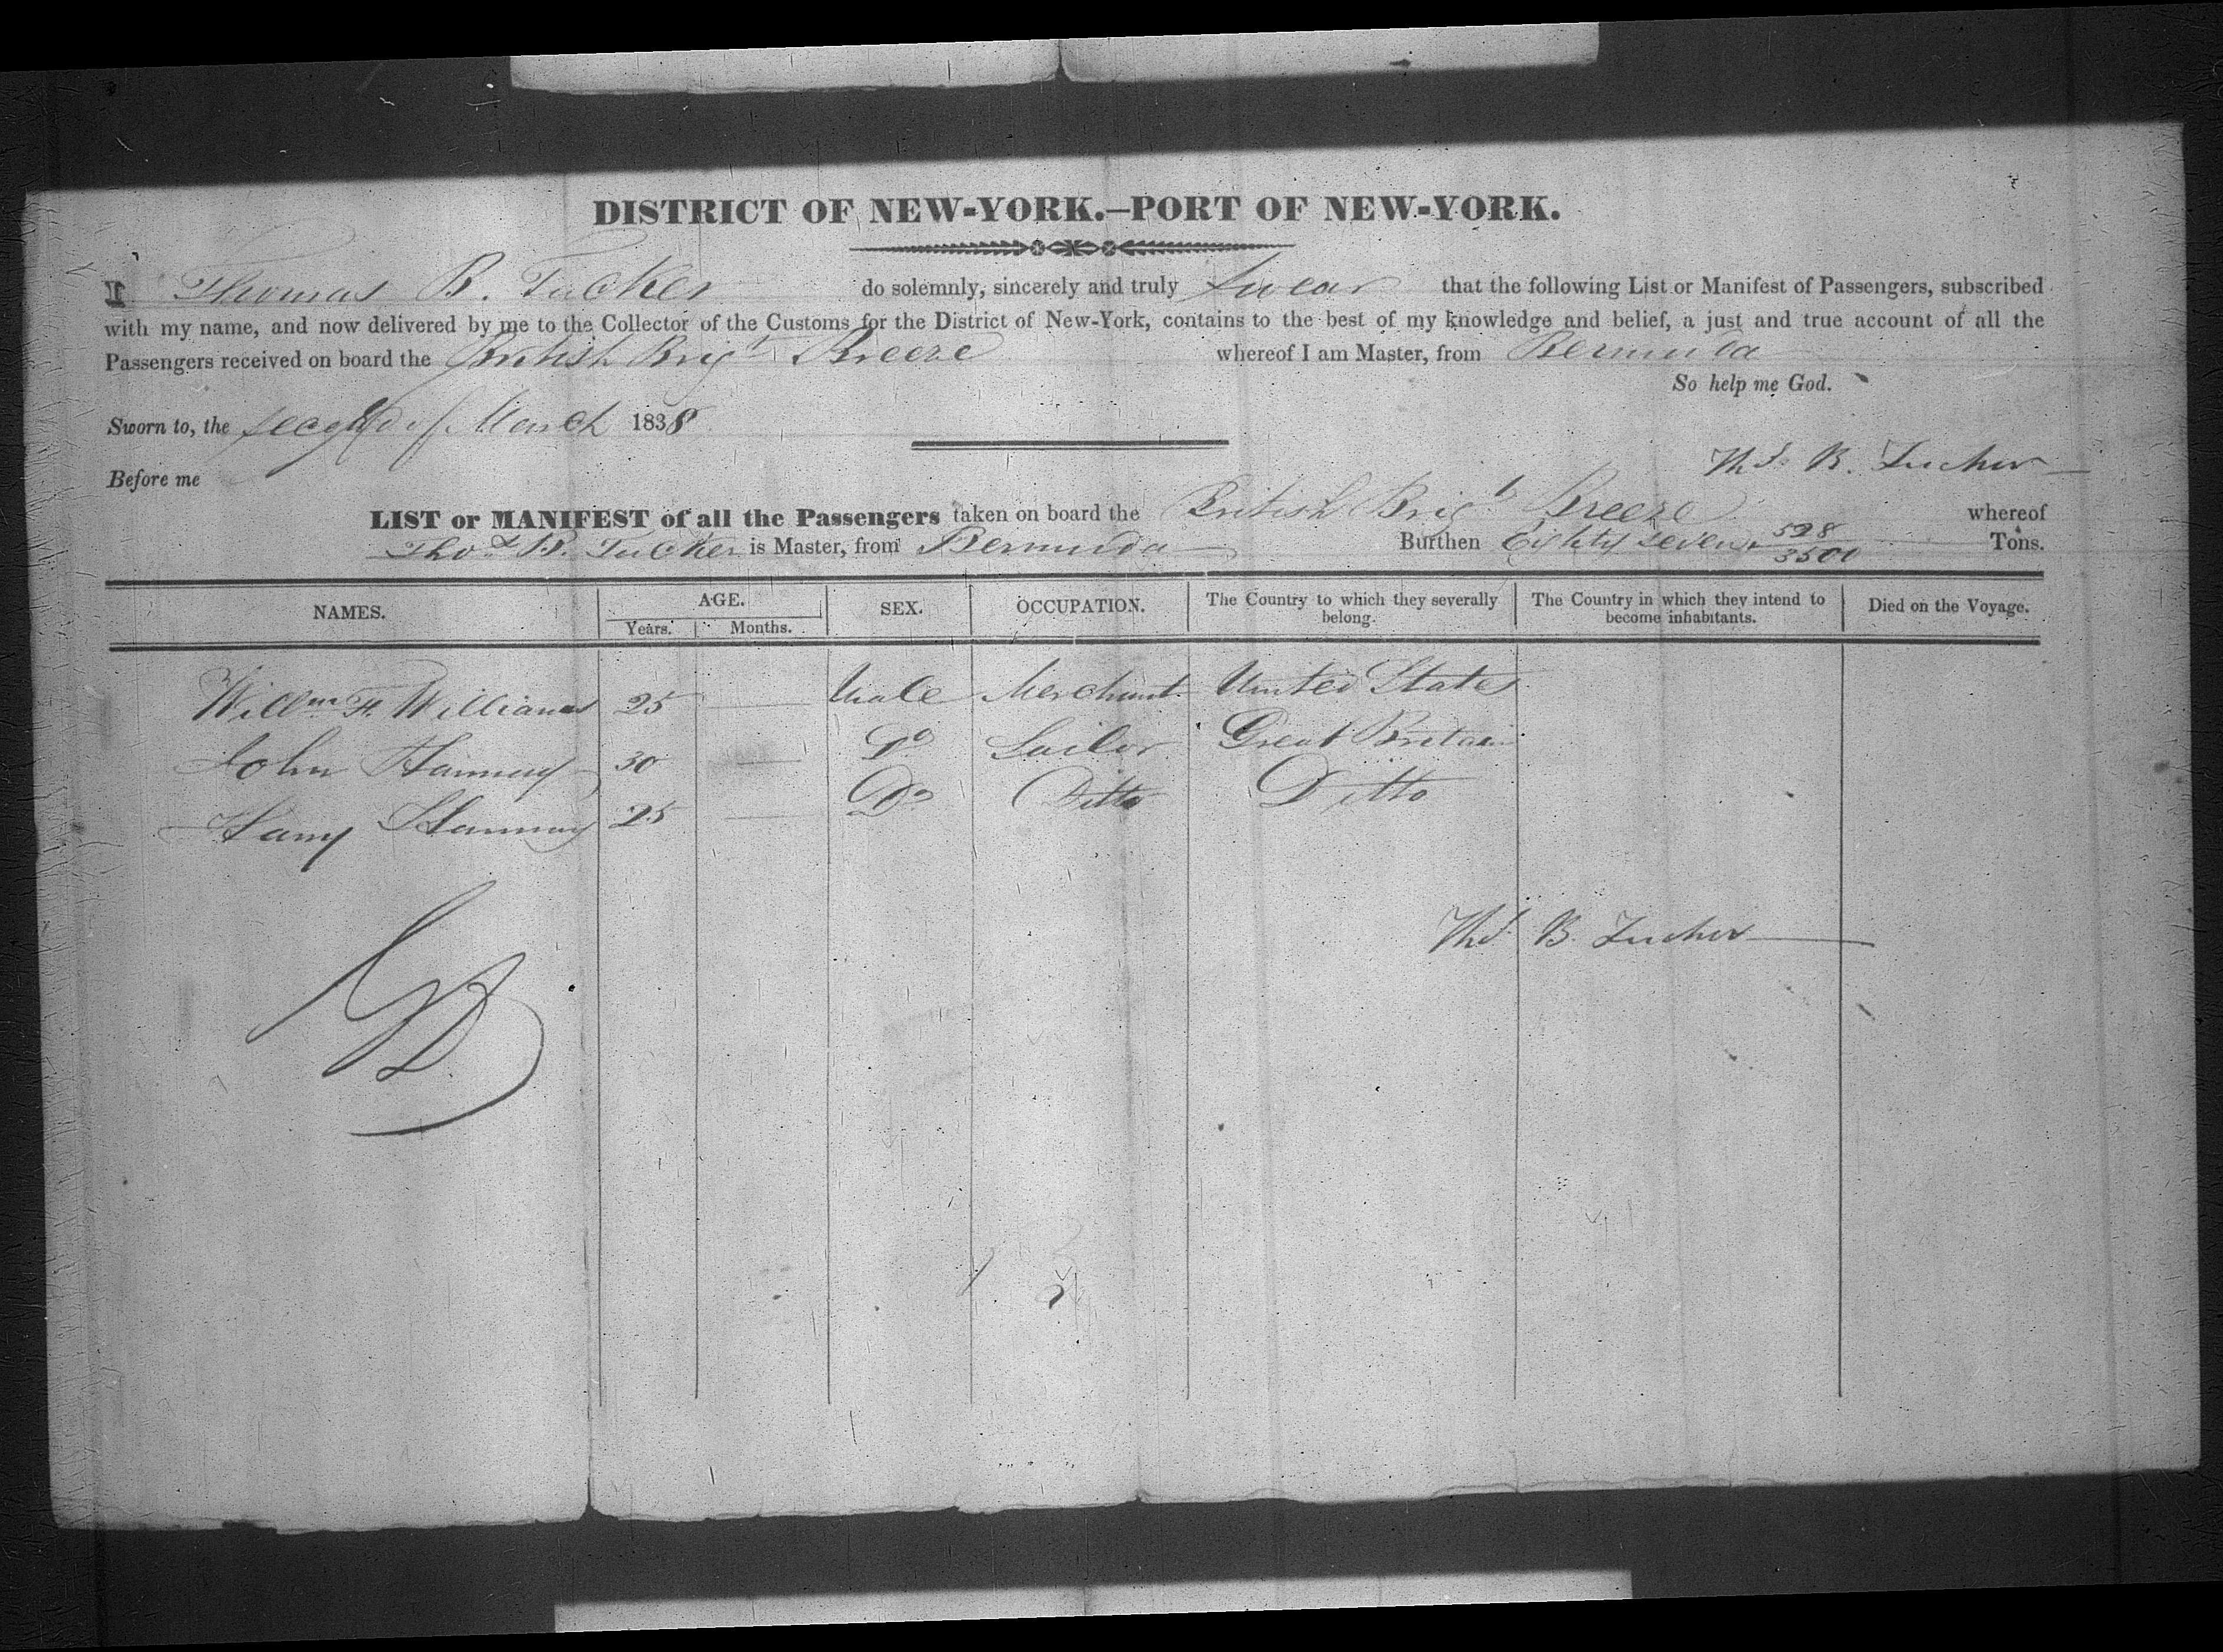 DISTRICT OF NEW-YORK.–PORT OF NEW-YORK.
I Thomas B. Tucker do solemnly, sincerely and truly swear that the following List or Manifest of Passengers, subscribed
with my name, and now delivered by me to the Collector of the Customs for the District of New-York, contains to the best of my knowledge and belief, a just and true account of all the
Passengers received on board the British Brigt Breeze whereof I am Master, from Bermuda
So help me God.
Sworn to, the second of March 1838
Thos. B. Tucker
Before me
LIST or MANIFEST of all the Passengers taken on board the British Brigt Breeze whereof
Thos B. Tucker is Master, from Bermuda Burthen Eighty seven 528/3500 Tons.
NAMES. AGE. SEX. OCCUPATION. The Country to which they severally belong. The Country in which they intend to become inhabitants. Died on the Voyage.
Years. Months.
Willm H. Williams 25 Male Merchant United States
John 30 Do Sailor Great Britain
25 Do Ditto Ditto
Thos. B. Tucker